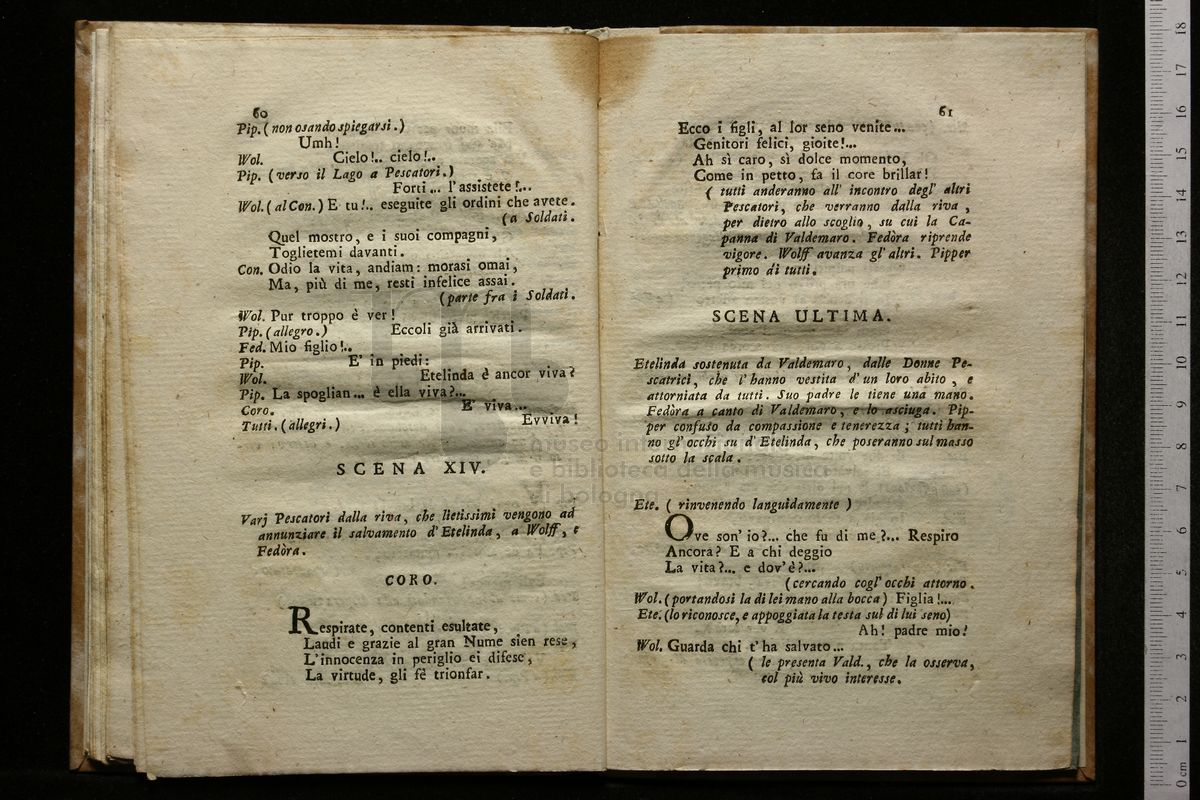 60
Pip. ( non osando spiegarsi . )
Umh !
Wol. Cielo !.. cielo !..
Pip. ( verso il Lago a Pescatori . )
Forti ... l' assistete !...
Wol. ( al Con. ) E tu !.. eseguite gli ordini che avete .
( a Soldati .
Quel mostro , e i suoi compagni ,
Toglietemi davanti .
Con. Odio la vita , andiam : morasi omai ,
Ma , più di me , resti infelice assai .
( parte fra i Soldati .
Wol. Pur troppo è ver !
Pip. ( allegro . ) Eccoli già arrivati .
Fed. Mio figlio !..
Pip. E' in piedi :
Wol. Etelinda è ancor viva ?
Pip. La spoglian ... è ella viva ?...
Coro. E' viva ...
Tutti . ( allegri . ) Evviva !
SCENA XIV.
Varj Pescatori dalla riva , che lietissimi vengono ad
annunziare il salvamento d' Etelinda , a Wolff , e
Fedòra .
CORO.
Respirate , contenti esultate ,
Laudi e grazie al gran Nume sien rese ,
L' innocenza in periglio ei difese ,
La virtude , gli fè trionfar .
61
Ecco i figli , al lor seno venite ...
Genitori felici , gioite !...
Ah sì caro , sì dolce momento ,
Come in petto , fa il core brillar !
( tutti anderanno all' incontro degl' altri
Pescatori , che verranno dalla riva ,
per dietro allo scoglio , su cui la Ca-
panna di Valdemaro . Fedòra riprende
vigore . Wolff avanza gl' altri . Pipper
primo di tutti .
SCENA ULTIMA.
Etelinda sostenuta da Valdemaro , dalle Donne Pe-
scatrici , che l' hanno vestita d' un loro abito , e
attorniata da tutti . Suo padre le tiene una mano .
Fedòra a canto di Valdemaro , e lo asciuga . Pip-
per confuso da compassione e tenerezza ; tutti han-
no gl' occhi su d' Etelinda , che poseranno sul masso
sotto la scala .
Ete. ( rinvenendo languidamente )
Ove son' io ?... che fu di me ?... Respiro
Ancora ? E a chi deggio
La vita ?... e dov' è ?...
( cercando cogl' occhi attorno .
Wol. ( portandosi la di lei mano alla bocca ) Figlia !...
Ete. ( lo riconosce , e appoggiata la testa sul di lui seno )
Ah ! padre mio !
Wol. Guarda chi t' ha salvato ...
( le presenta Vald. , che la osserva ,
col più vivo interesse .
museo in
e biblioteca della musica
di bologna
0 cm 1 2 3 4 5 6 7 8 9 10 11 12 13 14 15 16 17 18